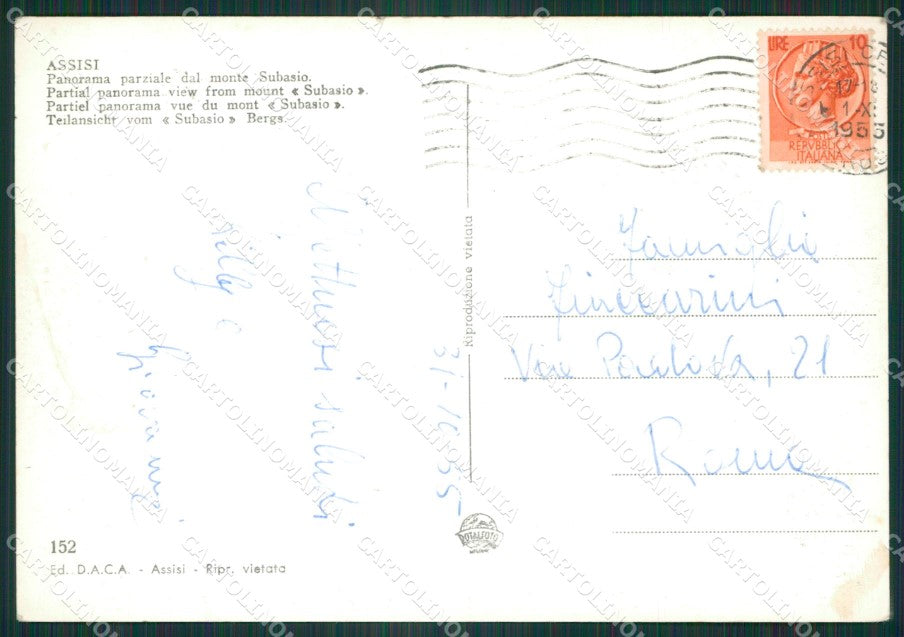 ASSISI
Panorama parziale dal monte Subasio.
Partial panorama view from mount « Subasio ».
Partiel panorama vue du mont « Subasio ».
Teilansicht vom « Subasio » Bergs.
LIRE 10
REPVBBLICA
ITALIANA
17-18
1-XI
1955
Affettuosi saluti
Nelly e
Giovanni
31-10-55
Riproduzione vietata
Famiglia
Via Paolo, 21
Roma
ROTALFOTO
MILANO
152
Ed. D.A.C.A. - Assisi - Ripr. vietata
CARTOLINOMANIA